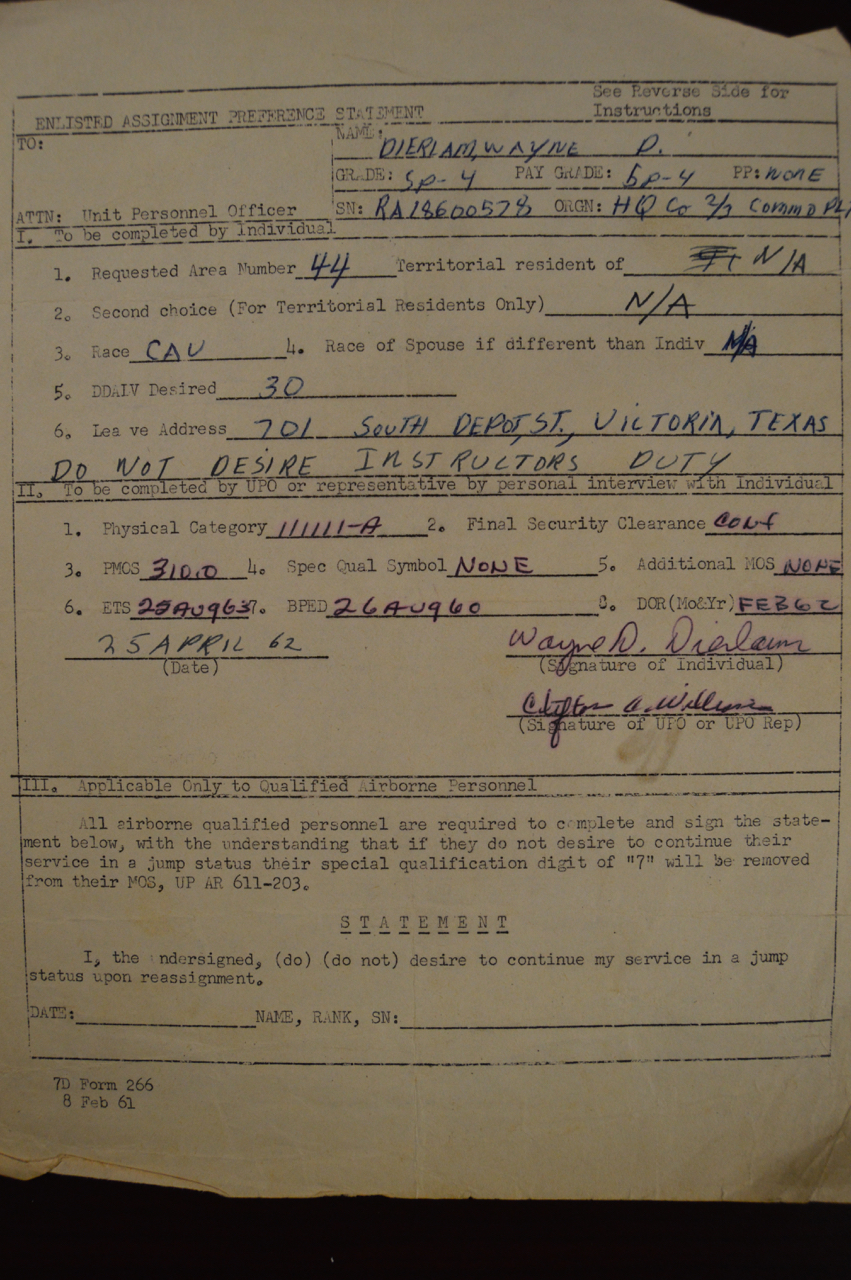 See Reverse Side for
ENLISTED ASSIGNMENT PREFERENCE STATEMENT Instructions
TO: NAME: DIERLAM, WAYNE D.
GRADE: Sp-4 PAY GRADE: Sp-4 PP: NONE
ATTN: Unit Personnel Officer SN: RA18600578 ORGN: HQ Co 2/7 COMMO PLT
I. To be completed by Individual
1. Requested Area Number 44 Territorial resident of N/A
2. Second choice (For Territorial Residents Only) N/A
3. Race CAU 4. Race of Spouse if different than Indiv N/A
5. DDAIV Desired 30
6. Lea ve Address 701 SOUTH DEPOT, ST., VICTORIA, TEXAS
DO NOT DESIRE INSTRUCTORS DUTY
II. To be completed by UPO or representative by personal interview with Individual
1. Physical Category 111111-A 2. Final Security Clearance CONF
3. PMOS 310.0 4. Spec Qual Symbol NONE 5. Additional MOS NONE
6. ETS 25AUG63 7. BPED 26AUG60 8. DOR(Mo&Yr) FEB62
25 APRIL 62 Wayne D. Dierlam
(Date) (Signature of Individual)
Clifton A.
(Signature of UPO or UPO Rep)
III. Applicable Only to Qualified Airborne Personnel
All airborne qualified personnel are required to complete and sign the state-
ment below, with the understanding that if they do not desire to continue their
service in a jump status their special qualification digit of "7" will be removed
from their MOS, UP AR 611-203.
S T A T E M E N T
I, the undersigned, (do) (do not) desire to continue my service in a jump
status upon reassignment.
DATE: NAME, RANK, SN:
7D Form 266
8 Feb 61